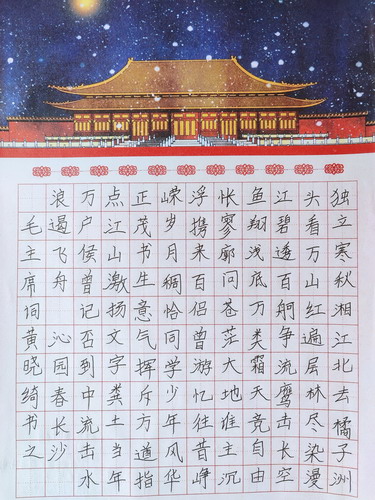 独立寒秋湘江北去橘子洲
头看万山红遍层林尽染漫
江碧透百舸争流鹰击长空
鱼翔浅底万类霜天竞自由
怅寥廓问苍茫大地谁主沉
浮携来百侣曾游忆往昔峥
嵘岁月稠恰同学少年风华
正茂书生意气挥斥方遒指
点江山激扬文字粪土当年
万户侯曾记否到中流击水
浪遏飞舟 沁园春长沙
毛主席词黄晓绮书之